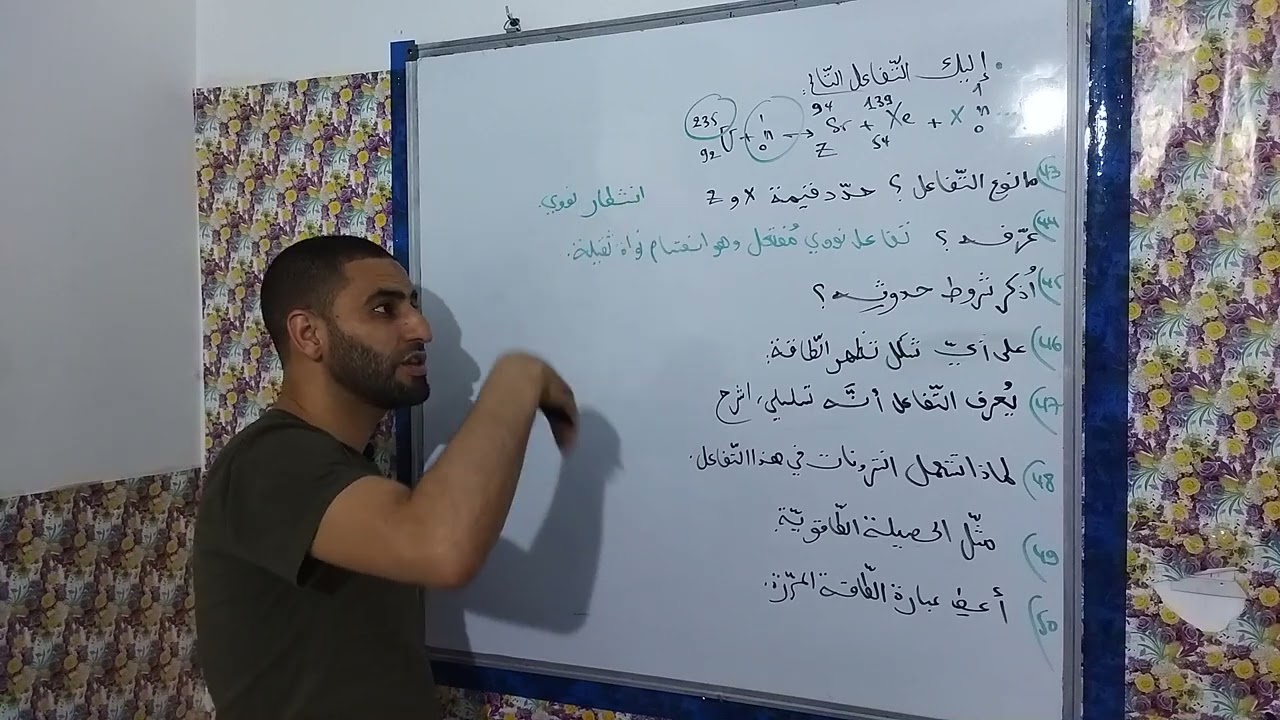 إليك التّفاعل التّالي:
²³⁵₉₂U + ¹₀n → ⁹⁴_Z Sr + ¹³⁹₅₄Xe + X ¹₀n ....
43) ما نوع التّفاعل؟ حدّد قيمة X و Z انشطار نووي.
44) عرّفه؟ تفاعل نووي مُفتعل وهو انقسام نواة ثقيلة.
45) أُذكر شروط حدوثه؟
46) على أيّ شكل تظهر الطّاقة.
47) يُعرف التّفاعل أنَّه تسلسلي، اشرح
48) لماذا تستعمل النترونات في هذا التّفاعل.
49) مثّل الحصيلة الطّاقويّة.
50) أعطِ عبارة الطّاقة المحرّرة.